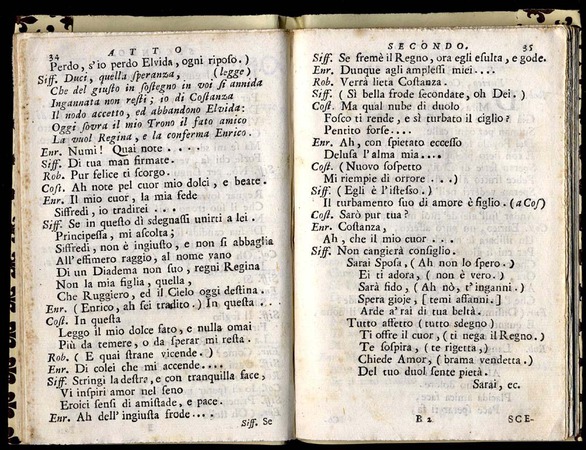 34 ATTO
Perdo, s'io perdo Elvida, ogni riposo. )
Siff. Duci, quella speranza, (legge)
Che del giusto in sostegno in voi si annida
Ingannata non resti; io di Costanza
Il nodo accetto, ed abbandono Elvida:
Oggi sovra il mio Trono il fato amico
La vuol Regina, e la conferma Enrico.
Enr. Numi! Quai note . . . .
Siff. Di tua man firmate.
Rob. Pur felice ti scorgo.
Cost. Ah note pel cuor mio dolci, e beate.
Enr. Il mio cuor, la mia fede
Siffredi, io tradirei . . . .
Siff. Se in questo dì sdegnassi unirti a lei.
Principessa, mi ascolta;
Siffredi, non è ingiusto, e non si abbaglia
All'effimero raggio, al nome vano
Di un Diadema non suo, regni Regina
Non la mia figlia, quella,
Che Ruggiero, ed il Cielo oggi destina.
Enr. (Enrico, ah sei tradito.) In questa . . .
Cost. In questa
Leggo il mio dolce fato, e nulla omai
Più da temere, o da sperar mi resta.
Rob. ( E quai strane vicende. )
Enr. Di colei che mi accende....
Siff. Stringi la destra, e con tranquilla face,
Vi inspiri amor nel seno
Eroici sensi di amistade, e pace.
Enr. Ah dell'ingiusta frode....
Siff. Se
SECONDO. 35
Siff. Se fremè il Regno, ora egli esulta, e gode.
Enr. Dunque agli amplessi miei....
Rob. Verrà lieta Costanza.
Siff. ( Sì bella frode secondate, oh Dei. )
Cost. Ma qual nube di duolo
Fosco ti rende, e sì turbato il ciglio?
Pentito forse....
Enr. Ah, con spietato eccesso
Delusa l'alma mia....
Cost. ( Nuovo sospetto
Mi riempie di orrore . . . )
Siff. ( Egli è l'istesso. )
Il turbamento suo di amore è figlio. (a Cos)
Cost. Sarò pur tua?
Enr. Costanza,
Ah, che il mio cuor . . .
Siff. Non cangierà consiglio.
Sarai Sposa, ( Ah non lo spero. )
Ei ti adora, ( non è vero. )
Sarà fido, ( Ah nò, t'inganni. )
Spera gioje, [ temi affanni. ]
Arde a' rai di tua beltà.
Tutto affetto ( tutto sdegno )
Ti offre il cuor, ( ti nega il Regno. )
Te sospira, ( te rigetta, )
Chiede Amor, ( brama vendetta. )
Del tuo duol sente pietà.
Sarai, ec.
B 2 SCE-